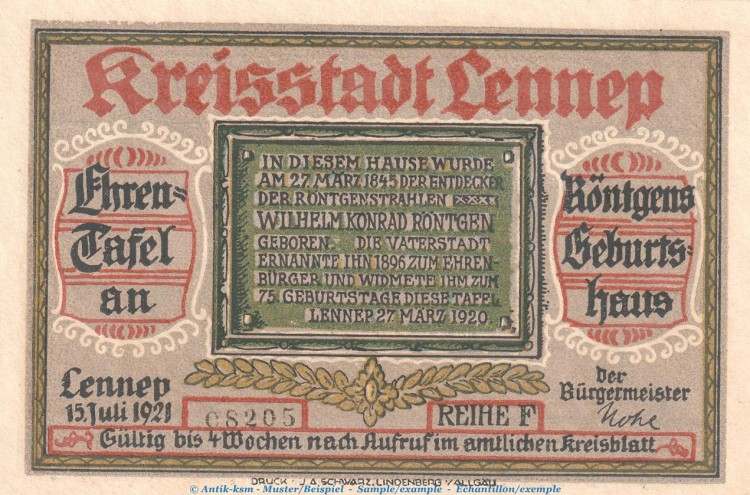 Kreisstadt Lennep
Ehren=
Tafel
an
IN DIESEM HAUSE WURDE
AM 27. MÄRZ 1845 DER ENTDECKER
DER RÖNTGENSTRAHLEN XXXX
WILHELM KONRAD RÖNTGEN
GEBOREN. DIE VATERSTADT
ERNANNTE IHN 1896 ZUM EHREN-
BÜRGER UND WIDMETE IHM ZUM
75. GEBURTSTAGE DIESE TAFEL
LENNEP 27 MÄRZ 1920.
Röntgens
Geburts=
haus
Lennep
15. Juli 1921
08205
REIHE F
der
Bürgermeister
Nohe
Gültig bis 4 Wochen nach Aufruf im amtlichen Kreisblatt.
DRUCK · J. A. SCHWARZ, LINDENBERG I/ALLGÄU
© Antik-ksm - Muster/Beispiel - Sample/example - Echantillon/exemple